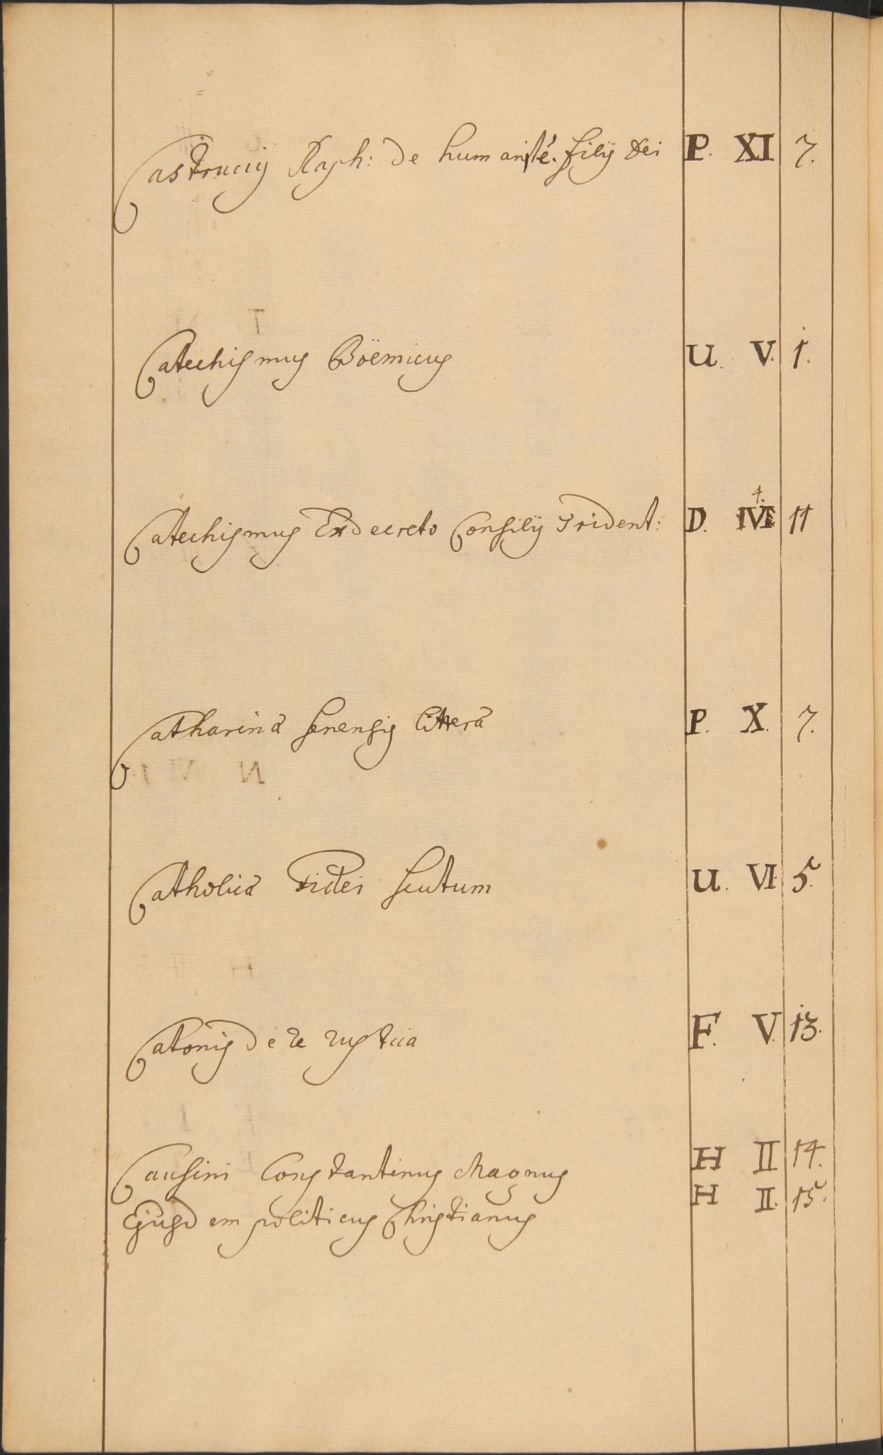 Castrucij Raph: de humanite. filij Dei P. XI 7.
Catechismus Böemicus U. V. 1.
Catechismus Ex decreto Consilij Trident: D. IV 11
Catharina Senensis littera P. X. 7.
Catholica Fidei scutum U. VI 5.
Catonis de re rustica F. V. 13.
Causini Constantinus Magnus H II 14.
Ejusdem politicus Christianus H II. 15.